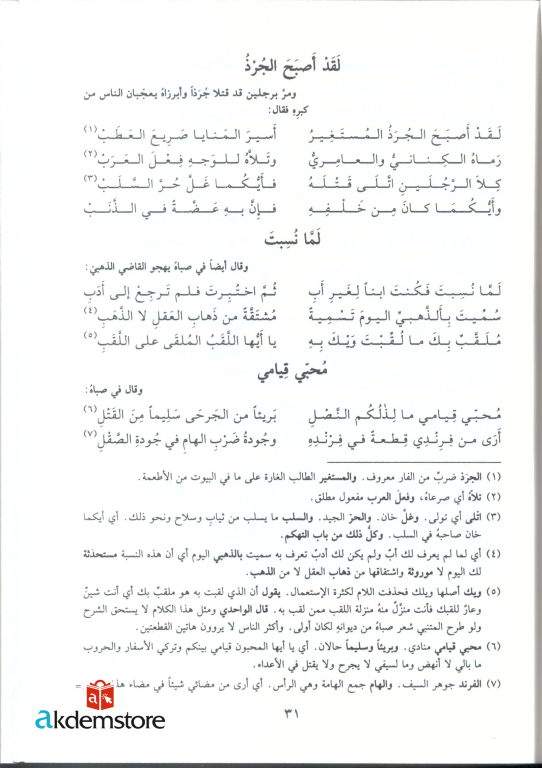 لَقَدْ أَصبَحَ الجُرْذُ
ومرّ برجلين قد قتلا جُرَذاً وأبرزاه يعجّبان الناس من
كبرِهِ فقال:
لَقَدْ أَصبَحَ الجُرَذُ المُستَغيرُ أسيرَ المَنايا صَريعَ العَطَبْ(١)
رَماهُ الكِنانيُّ والعامِريُّ وتَلاّهُ للوَجهِ فِعْلَ العَرَبْ(٢)
كِلاَ الرَّجُلَينِ اتَّلى قَتْلَهُ فأيُّكُما غَلَّ حُرَّ السَّلَبْ(٣)
وأيُّكُمَا كانَ مِن خَلْفِهِ فإنَّ بهِ عَضّةً في الذَّنَبْ
لَمَّا نُسِبتَ
وقال أيضاً في صباه يهجو القاضي الذهبيّ:
لَمَّا نُسِبتَ فكُنتَ ابناً لِغَيرِ أبٍ ثُمّ اختُبِرتَ فلم تَرجِعْ إلى أدَبِ
سُمّيتَ بِألذَّهبيِّ اليومَ تَسْمِيةً مُشتَقّةً من ذَهابِ العقلِ لا الذَّهَبِ(٤)
مُلَقَّبٌ بِكَ ما لُقّبْتَ وَيْكَ بِهِ يا أيُّها اللَّقَبُ المُلقَى على اللَّقَبِ(٥)
مُحبّي قِيامي
وقال في صباه:
مُحبّي قيامي ما لِذٰلِكُمُ النَّصْلِ بَريئاً من الجَرحَى سَليماً مِنَ القَتْلِ(٦)
أرَى من فِرِندي قِطعةً في فِرِندِهِ وجُودةُ ضَرْبِ الهامِ في جُودةِ الصَّقْلِ(٧)
(١) الجرَذ ضربٌ من الفار معروف. والمستغير الطالب الغارة على ما في البيوت من الأطعمة.
(٢) تلاّهُ أي صرعاه، وفعلَ العرب مفعول مطلق.
(٣) اتّلى أي تولى. وغلّ خان. والحرّ الجيد. والسلب ما يسلب من ثيابٍ وسلاح ونحو ذلك. أي أيكما
خان صاحبهُ في السلب. وكلُّ ذلك من باب التهكم.
(٤) أي لما لم يعرف لك أبٌ ولم يكن لك أدبٌ تعرف به سميت بالذهبي اليوم أي أن هذه النسبة مستحدثة
لك اليوم لا موروثة واشتقاقها من ذهاب العقل لا من الذهب.
(٥) ويك أصلها ويلك فحذفت اللام لكثرة الإستعمال. يقول أن الذي لقبت به هو ملقبٌ بك أي أنت شينٌ
وعارٌ للقبك فأنت منزَّلٌ منهُ منزلة اللقب ممن لقب به. قال الواحدي ومثل هذا الكلام لا يستحق الشرح
ولو طرح المتنبي شعر صباهُ من ديوانهِ لكان أولى. وأكثر الناس لا يروون هاتين القطعتين.
(٦) محبي قيامي منادى. وبريئاً وسليماً حالان. أي يا أيها المحبون قيامي بينكم وتركي الأسفار والحروب
ما بالي لا أنهض وما لسيفي لا يجرح ولا يقتل في الأعداء.
(٧) الفرند جوهر السيف. والهام جمع الهامة وهي الرأس. أي أرى من مضائي شيئاً في مضاء =
akdemstore
٣١